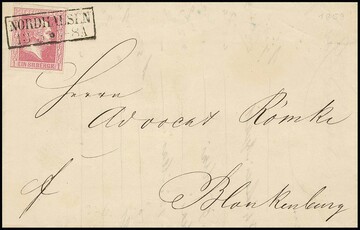 NORDHAUSEN
EIN SILBERGR.
Herrn
Advocat Römke
Blankenburg